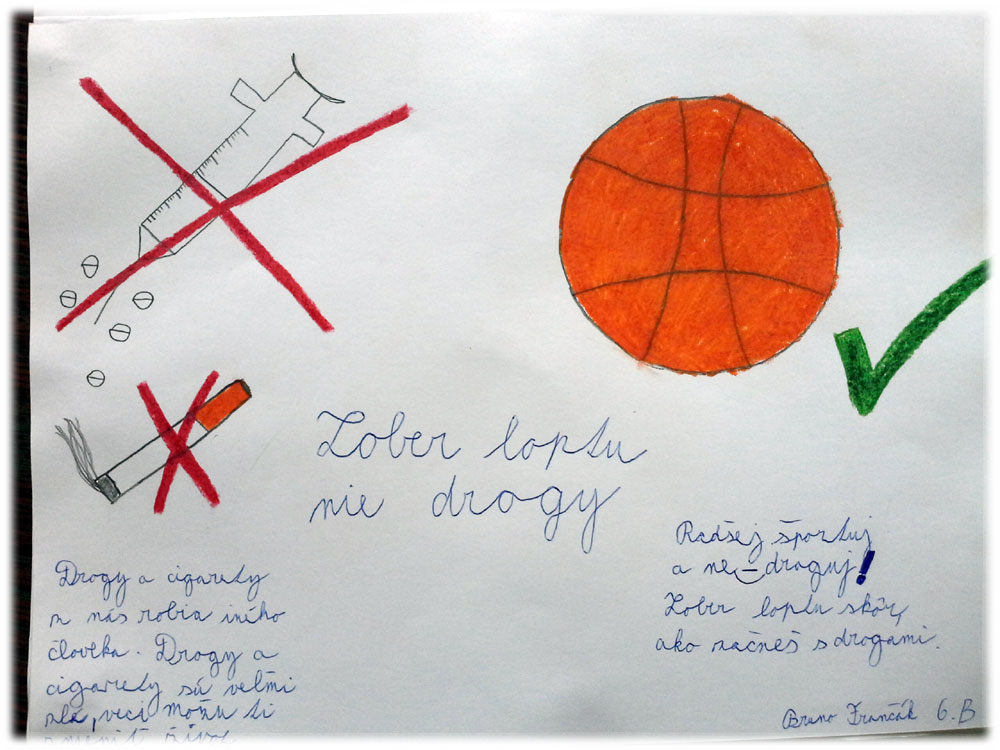 Zober loptu
nie drogy
Drogy a cigarety
z nás robia iného
človeka. Drogy a
cigarety sú veľmi
zlé, veci možu ti
zmeniť život
Radšej športuj
a ne-droguj!
Zober loptu skôr,
ako začneš s drogami.
Bruno Frančák 6.B